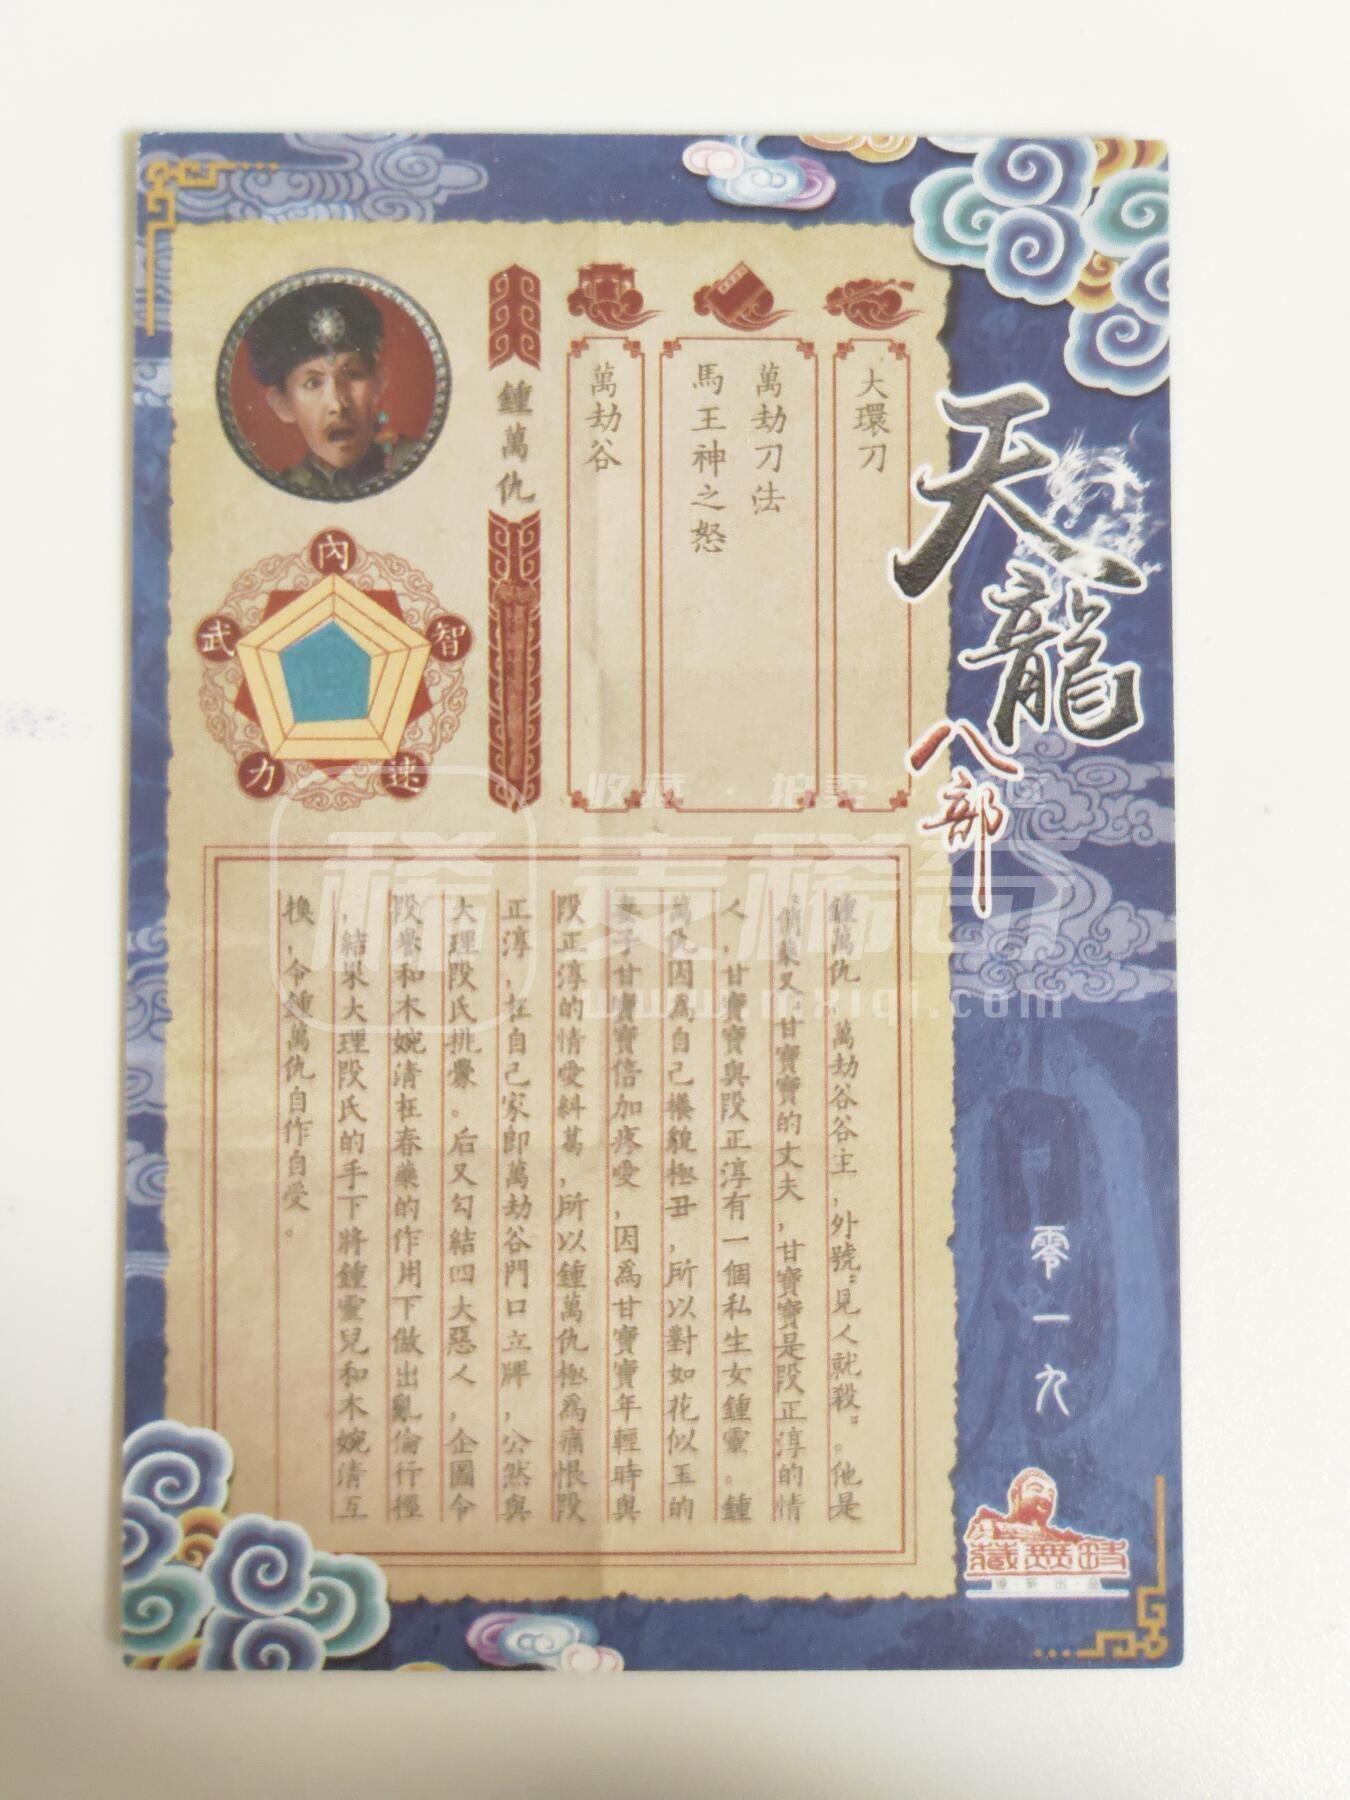 天龍八部
零一九
大環刀
萬劫刀法
馬王神之怒
萬劫谷
鍾萬仇
內
智
速
力
武
鍾萬仇，萬劫谷谷主，外號"見人就殺"。他是
"俏藥叉"甘寶寶的丈夫，甘寶寶是段正淳的情
人，甘寶寶與段正淳有一個私生女鍾靈。鍾
萬仇因為自己樣貌極丑，所以對如花似玉的
妻子甘寶寶倍加疼愛，因為甘寶寶年輕時與
段正淳的情愛糾葛，所以鍾萬仇極為痛恨段
正淳，在自己家即萬劫谷門口立牌，公然與
大理段氏挑釁。后又勾結四大惡人，企圖令
段譽和木婉清在春藥的作用下做出亂倫行徑
，結果大理段氏的手下將鍾靈兒和木婉清互
換，令鍾萬仇自作自受。
藏無時
稀
麦稀奇
收藏·拍卖
www.mxiqi.com